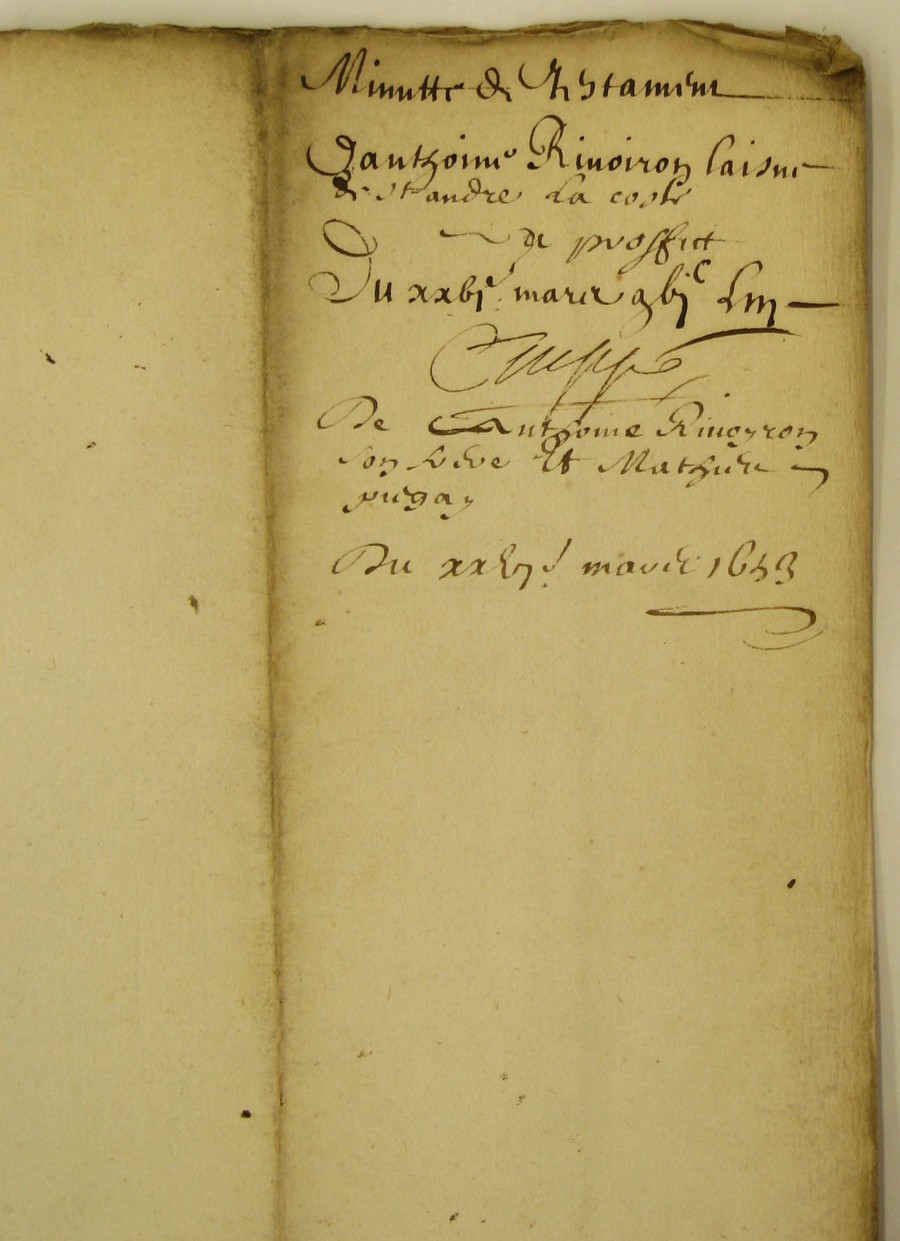 Minutte de Testament
Danthoine Rivoiron laisne
de st andre La coste
de proffict
Du xxbje mars gbjC Liij
De Anthoine Rivoyron
son frere Et Mathieu
pugay
Du xxbje mars 1653